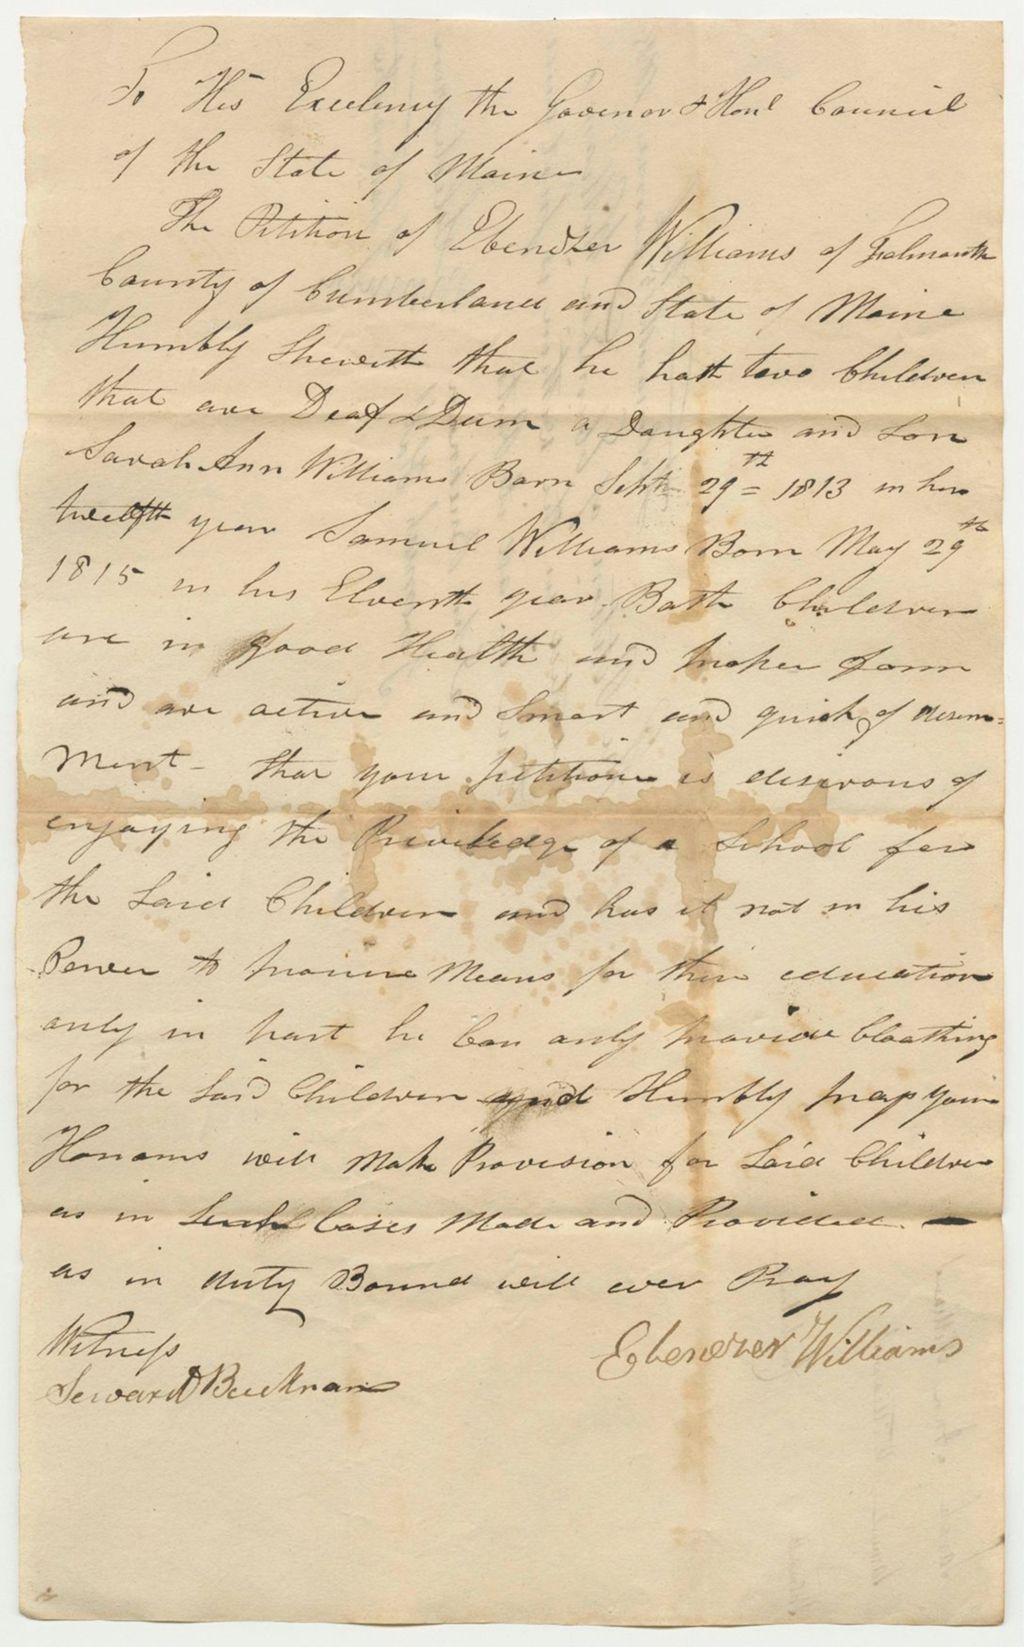 To His Excelency the Govenor & Honl Council
of the State of Maine
The Petition of Ebenezer Williams of Falmouth
County of Cumberland and State of Maine
Humbly Sheweth that he hath two Children
that are Deaf & Dum a Daughter and Son
Sarah Ann Williams Born Sept 29th = 1813 in her
twelfth year Samuel Williams Born May 29th
1815 in his Eleventh year Both Children
are in good Health and proper form
and are active and Smart and quick of
ment - that your petitioner is desirous of
enjoying the Priviledge of a School for
the Said Children and has it not in his
Power to provide Means for their education
only in part he Can only provide Cloathing
for the Said Children and Humbly pray your
Honours will Make Provision for Said Children
as in Such Cases Made and Provided —
as in duty Bound will ever Pray
Witness
Ebenezer Williams
Seward Bucknam